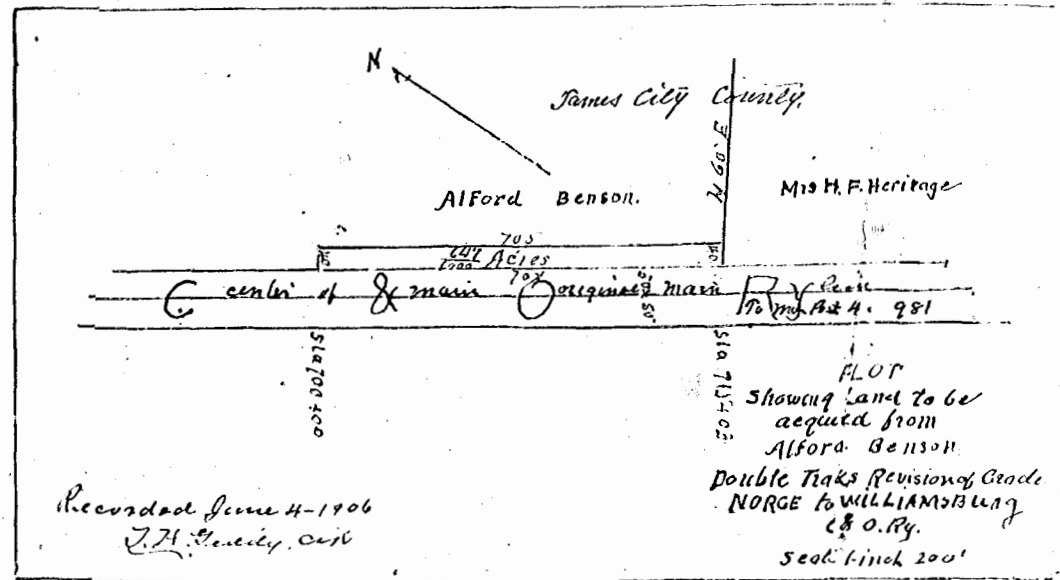 N
James City County.
N 60. E
Alford Benson.
Mrs H. F. Heritage
705
647/1000 Acres
702
40
C center of & main O original main RY
50'
To my Post 4. 981
Sta 700+00
PLOT
Showing Land to be
acquied from
Alford. Benson
Double Traks Revision of Grade
NORGE to WILLIAMSBURG
C & O. Ry.
Scale 1-inch 200'
Recorded June 4-1906
T. H. Geddy, Clk